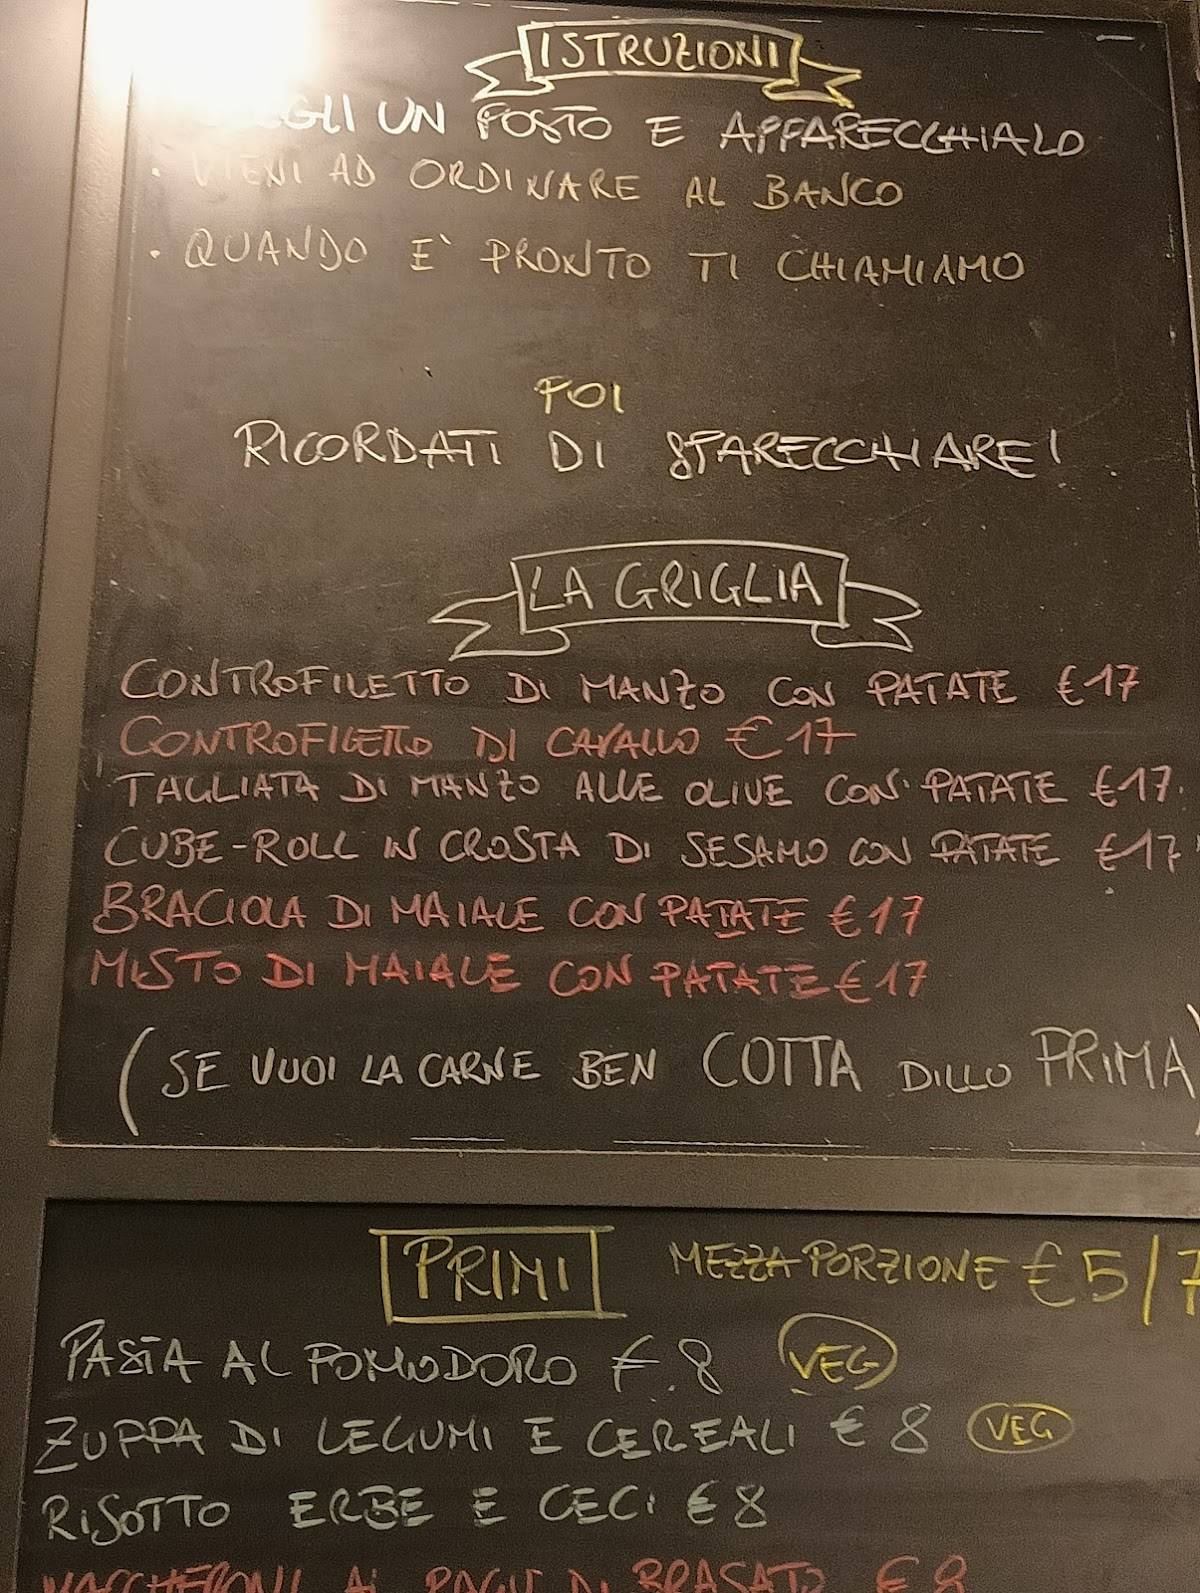 ISTRUZIONI
UN POSTO E APPARECCHIALO
• VIENI AD ORDINARE AL BANCO
• QUANDO E' PRONTO TI CHIAMIAMO
POI
RICORDATI DI SPARECCHIARE!
LA GRIGLIA
CONTROFILETTO DI MANZO CON PATATE €17
CONTROFILETTO DI CAVALLO €17
TAGLIATA DI MANZO ALLE OLIVE CON PATATE €17
CUBE-ROLL IN CROSTA DI SESAMO CON PATATE €17
BRACIOLA DI MAIALE CON PATATE €17
MISTO DI MAIALE CON PATATE €17
(SE VUOI LA CARNE BEN COTTA DILLO PRIMA)
PRIMI MEZZA PORZIONE € 5/7
PASTA AL POMODORO € 8 VEG
ZUPPA DI LEGUMI E CEREALI € 8 VEG
RISOTTO ERBE E CECI € 8
MACCHERONI AL RAGU' DI BRASATO € 8